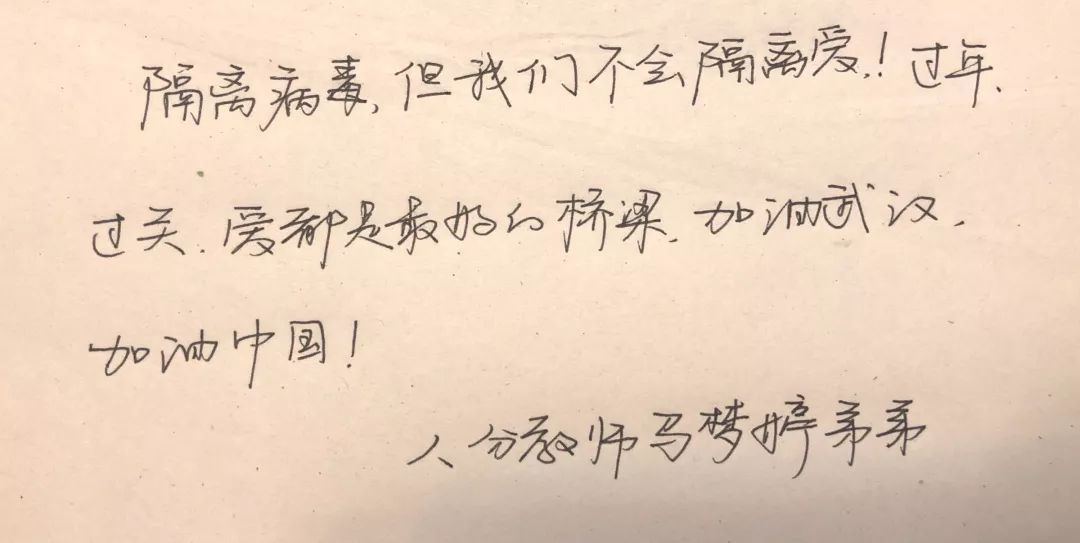 隔离病毒,但我们不会隔离爱!过年、
过关、爱都是最好的桥梁,加油武汉,
加油中国!
人分教师马梦婷弟弟